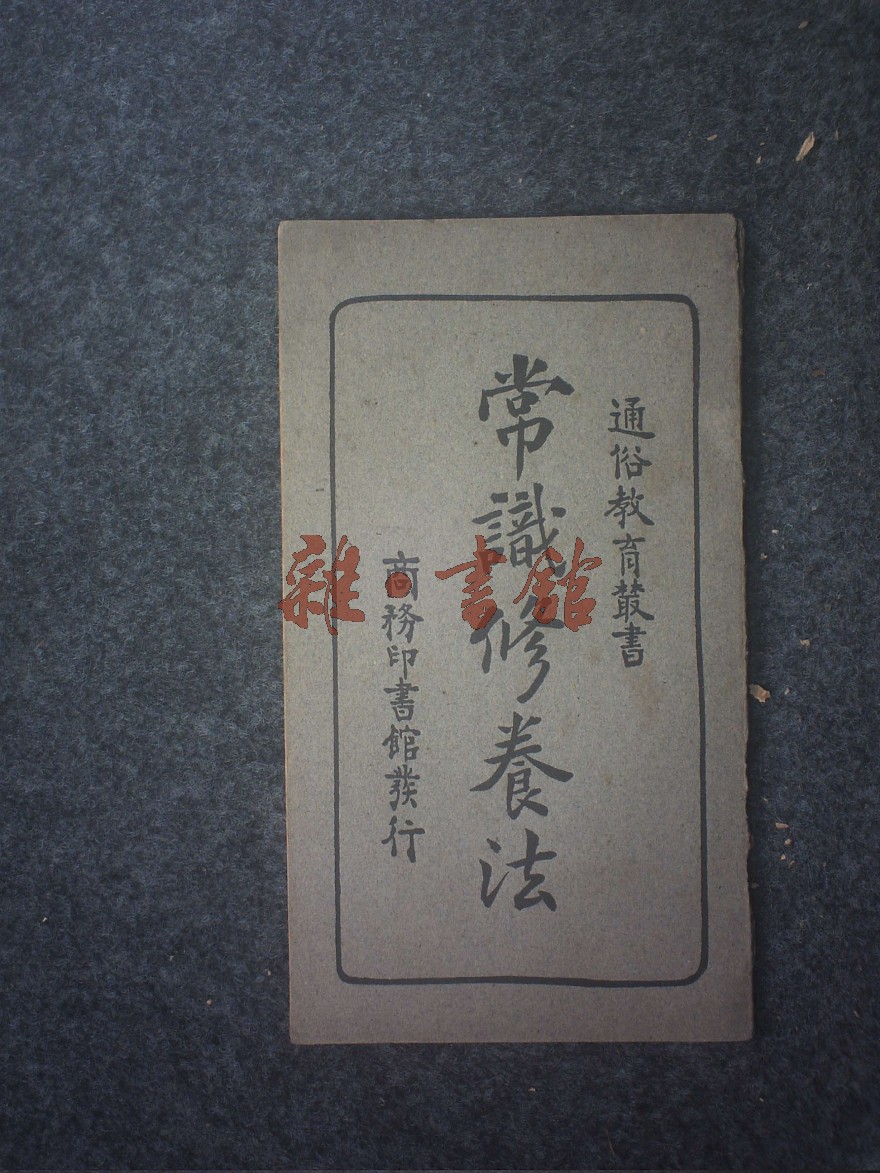 通俗教育叢書
常識修養法
商務印書館發行
雜·書館